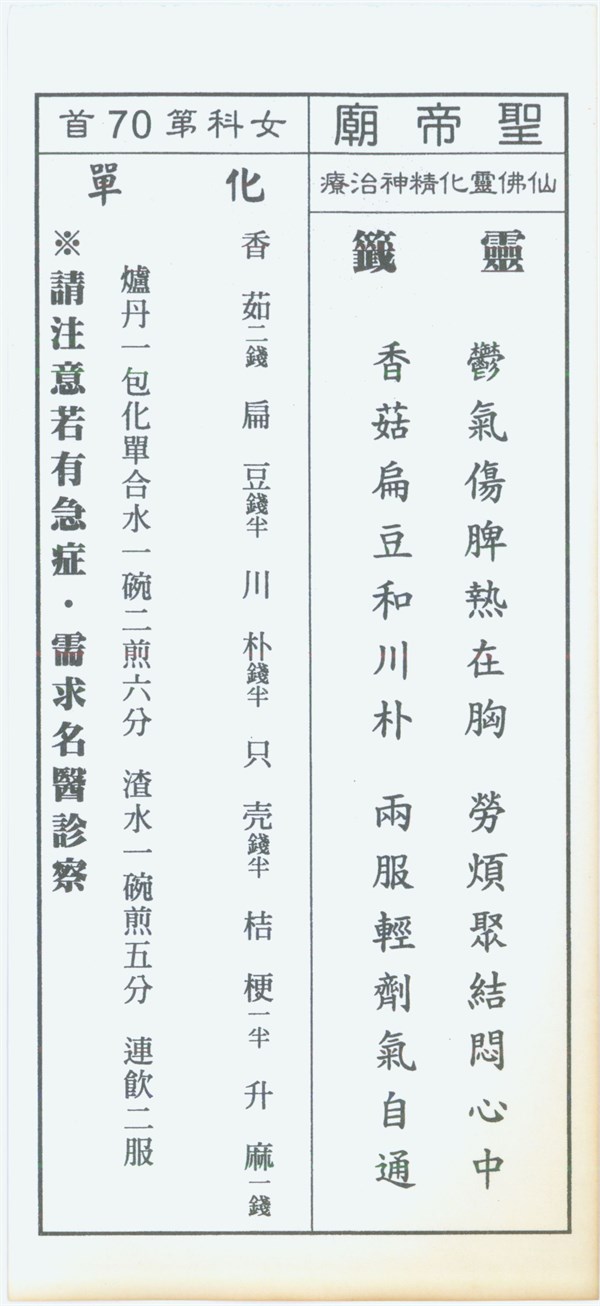 聖帝廟
仙佛靈化精神治療
靈籤
鬱氣傷脾熱在胸 勞煩聚結悶心中
香菇扁豆和川朴 兩服輕劑氣自通
女科第70首
化單
香茹二錢 扁豆錢半 川朴錢半 只壳錢半 桔梗一半 升麻一錢
爐丹一包化單合水一碗二煎六分 渣水一碗煎五分 連飲二服
※請注意若有急症．需求名醫診察